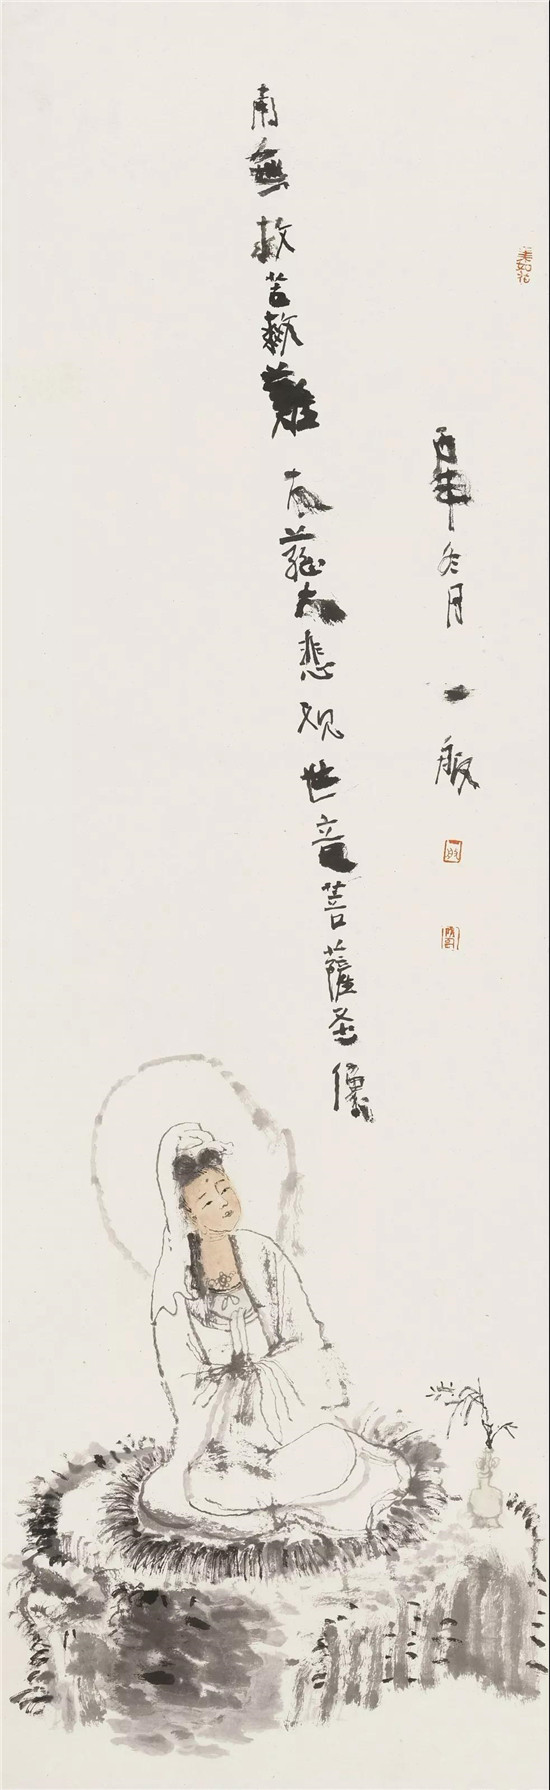 南無救苦救難大慈大悲观世音菩薩圣像
丙申冬月一般